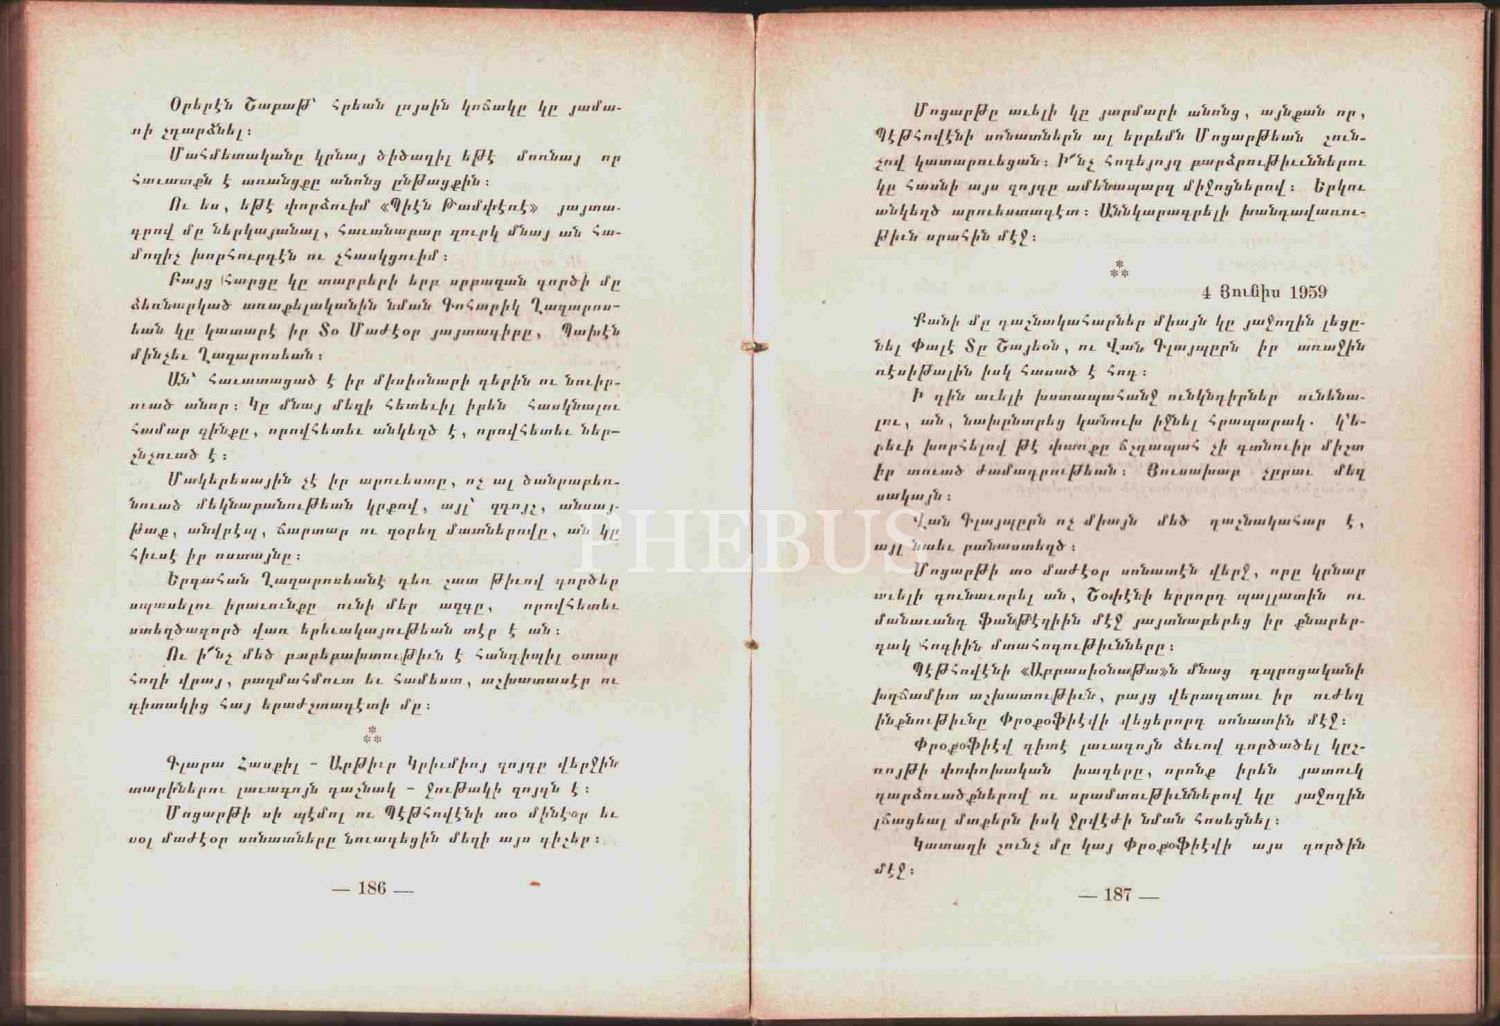 Օրերէն Շաբաթ՝ հրեան լոյսին կոճակը կը յամա-
ռի չդարձնել։
Մահմետականը կրնայ ծիծաղիլ եթէ մոռնայ որ
հաւատքն է առանցքը անոնց ընթացքին։
Ու ես, եթէ փորձուիմ «Պիէն Թամփէռէ» յայտա-
գրով մը ներկայանալ, հաւանաբար զուրկ մնայ ան հա-
մոզիչ խորհուրդէն ու չհասկցուիմ։
Բայց հարցը կը տարբերի երբ սրբազան գործի մը
ձեռնարկած առաքելականին նման Գոհարիկ Ղազարոս-
եան կը կատարէ իր Տօ Մաժէօր յայտագիրը, Պախէն
մինչեւ Ղազարոսեան։
Ան՝ հաւատացած է իր միսիոնարի դերին ու նուիր-
ուած անոր։ Կը մնայ մեզի հետեւիլ իրեն հասկնալու
համար զինքը, որովհետեւ անկեղծ է, որովհետեւ ներ-
շնչուած է։
Մակերեսային չէ իր արուեստը, ոչ ալ ծանրաբեռ-
նուած մեկնաբանութեան կրքով, այլ՝ զգոյշ, անսայ-
թաք, անվրէպ, ճարտար ու զօրեղ մատներովը, ան կը
հիւսէ իր ոստայնը։
Երգահան Ղազարոսեանէ դեռ շատ թիւով գործեր
սպասելու իրաւունքը ունի մեր ազգը, որովհետեւ
ստեղծագործ վառ երեւակայութեան տէր է ան։
Ու ի՜նչ մեծ բարեբախտութիւն է հանդիպիլ օտար
հողի վրայ, բազմահմուտ եւ համեստ, աշխատասէր ու
գիտակից հայ երաժշտագէտի մը։
***
Գլարա Հասքիլ - Արթիւր Կրիւմիոյ զոյգը վերջին
տարիներու լաւագոյն դաշնակ - ջութակի զոյգն է։
Մոցարթի սի պէմոլ ու Պէթհովէնի տօ մինէօր եւ
սօլ մաժէօր սոնատները նուագեցին մեզի այս գիշեր։
— 186 —
Մոցարթը աւելի կը յարմարի անոնց, այնքան որ,
Պէթհովէնի սոնատներն ալ երբեմն Մոցարթեան շուն-
չով կատարուեցան։ Ի՜նչ հոգեյոյզ բարձրութիւններու
կը հասնի այս զոյգը ամենապարզ միջոցներով։ Երկու
անկեղծ արուեստագէտ։ Աննկարագրելի խանդավառու-
թիւն սրահին մէջ։
***
4 Յունիս 1959
Քանի մը դաշնակահարներ միայն կը յաջողին լեցը-
նել Փալէ Տը Շայեօն, ու Վան Գլայպըրն իր առաջին
ռէսիթալին իսկ հասած է հոդ։
Ի գին աւելի խստապահանջ ունկնդիրներ ունենա-
լու, ան, նախընտրեց կանուխ իջնել հրապարակ. կ՚ե-
րեւի խորհելով թէ փառքը ճշդապահ չի գտնուիր միշտ
իր տուած ժամադրութեան։ Յուսախաբ չըրաւ մեզ
սակայն։
Վան Գլայպըրն ոչ միայն մեծ դաշնակահար է,
այլ նաեւ բանաստեղծ։
Մոցարթի տօ մաժէօր սոնատէն վերջ, որը կրնար
աւելի գունաւորել ան, Շօփէնի երրորդ պալլատին ու
մանաւանդ Ֆանթէզիին մէջ յայտնաբերեց իր քնարեր-
գակ հոգիին մտահոգութիւնները։
Պէթհովէնի «Աբբասիօնաթա»ն մնաց դպրոցականի
խղճամիտ աշխատութիւն, բայց վերագտաւ իր ուժեղ
ինքնութիւնը Փրօքօֆիէվի վեցերորդ սոնատին մէջ։
Փրօքօֆիէվ գիտէ լաւագոյն ձեւով գործածել կըշ-
ռոյթի փոփոխական խաղերը, որոնք իրեն յատուկ
դարձուածքներով ու սրամտութիւններով կը յաջողին
լճացեալ մտքերն իսկ ջրվէժի նման հոսեցնել։
Կատաղի շունչ մը կայ Փրօքօֆիէվի այս գործին
մէջ։
— 187 —
PHEBUS